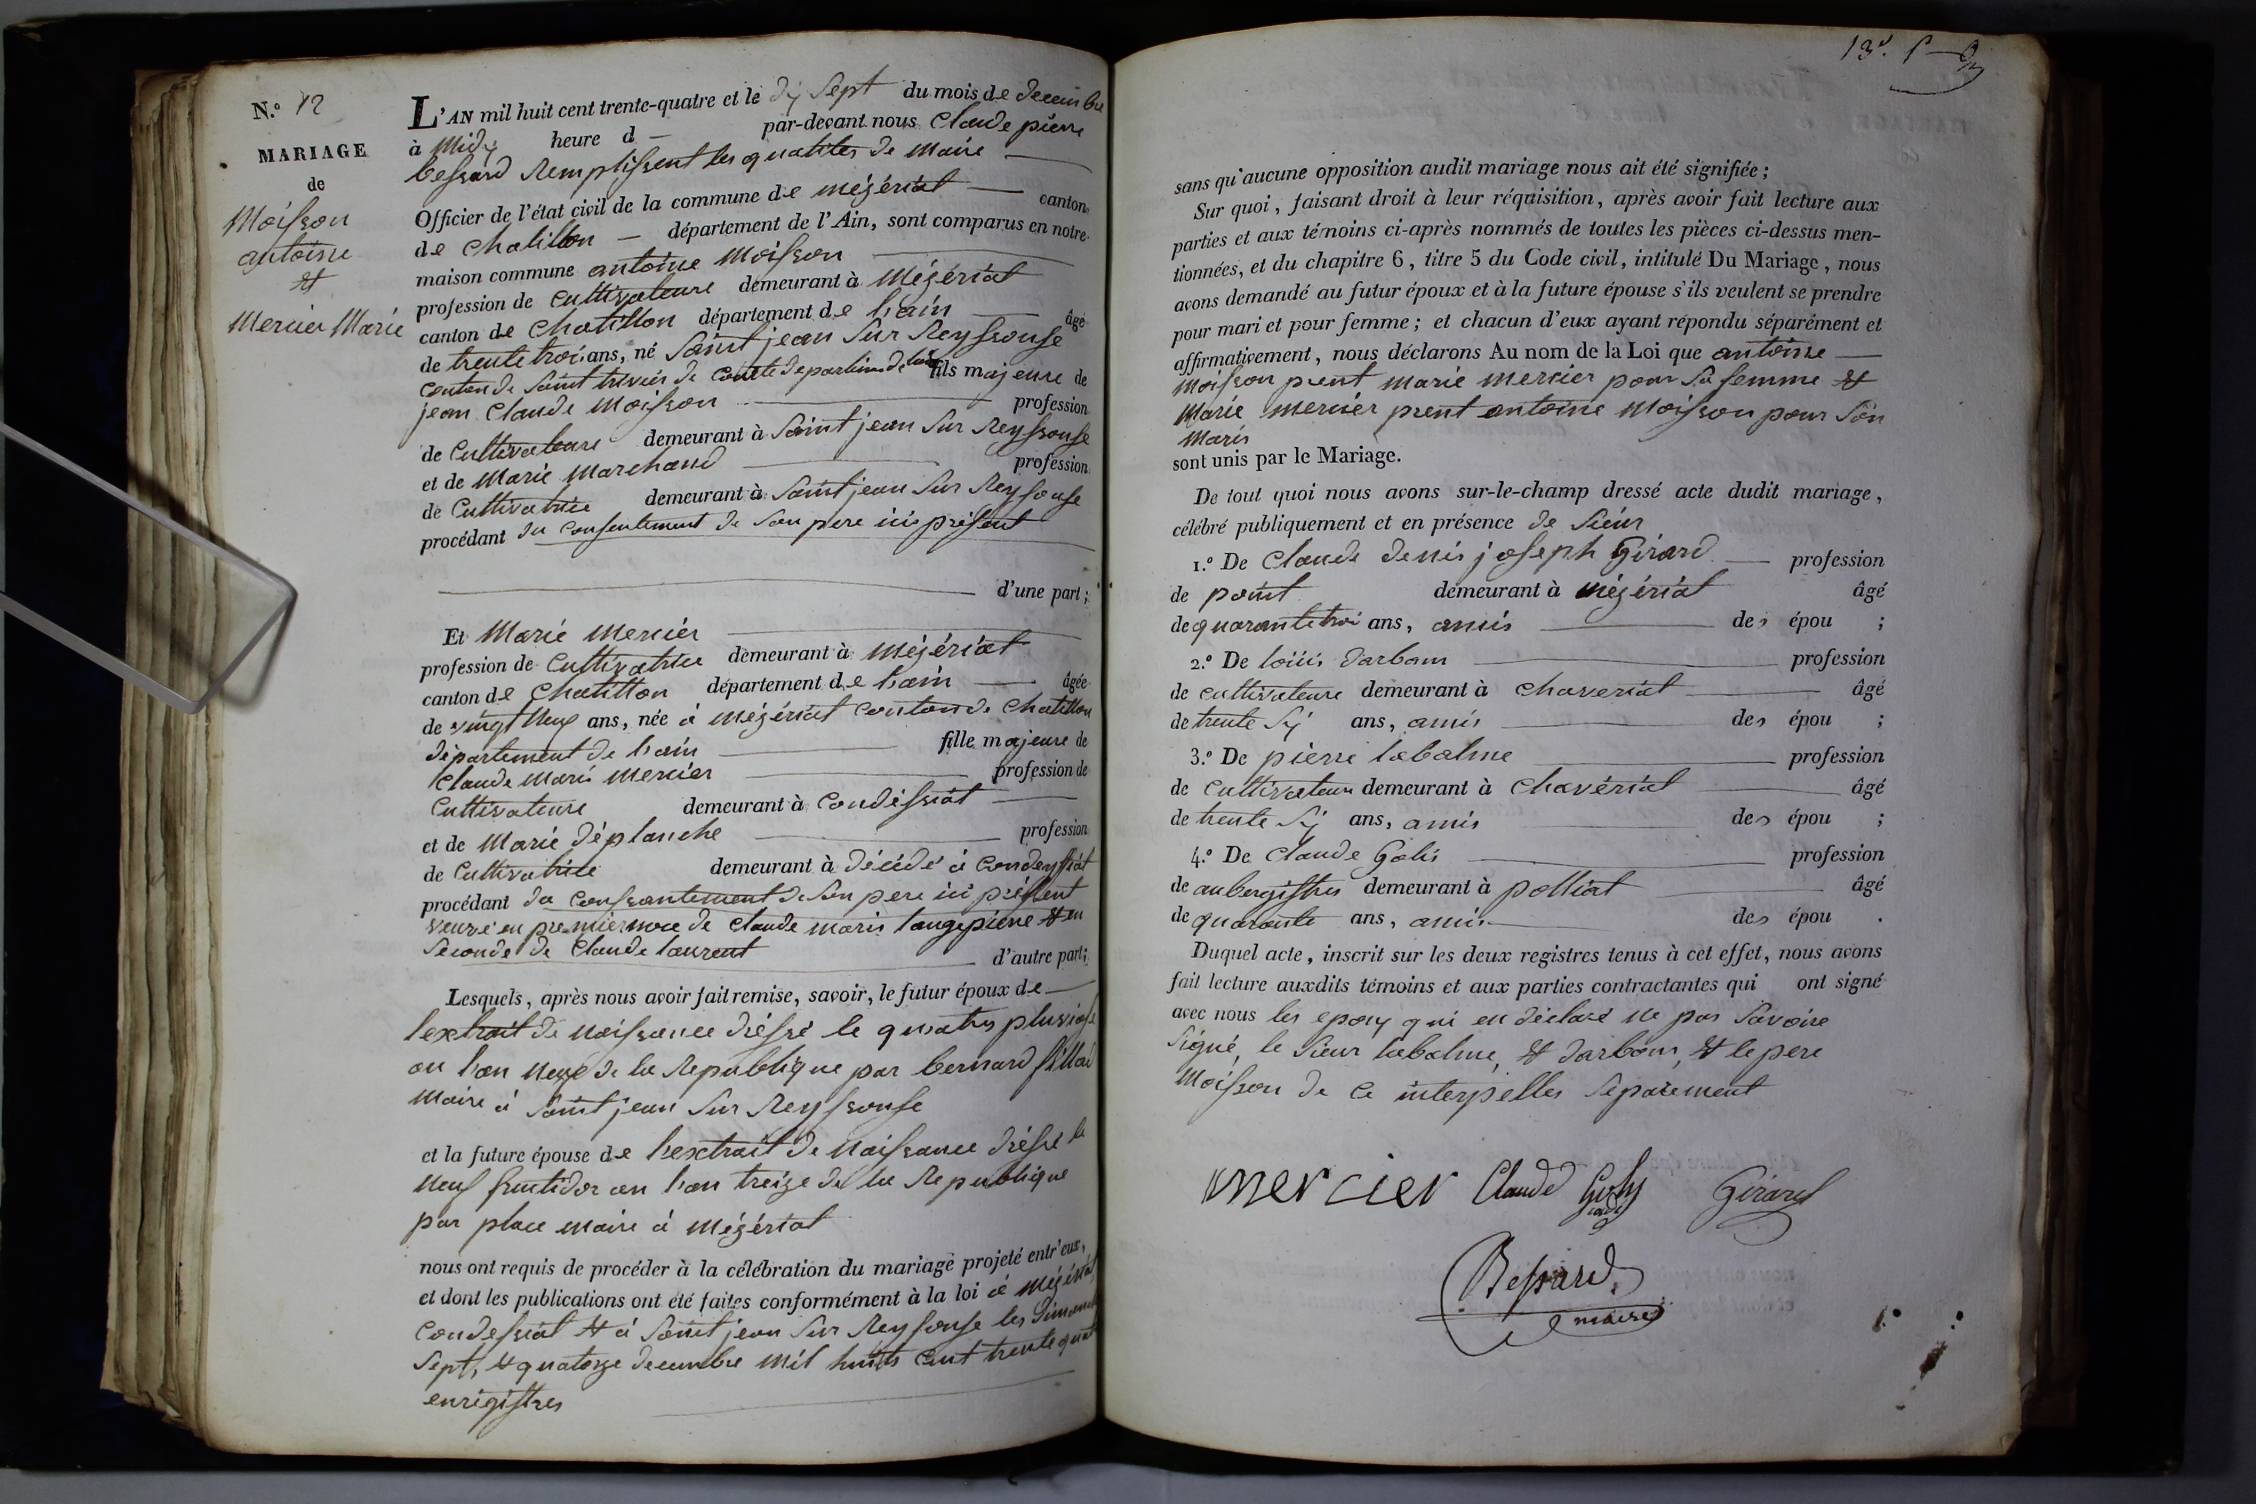 N.º 12
MARIAGE
de
Moisson
antoine
et
Mercier Marie
L'AN mil huit cent trente-quatre et le dix Sept du mois de decembre
à Midy heure d par-devant nous Claude pierre
bessard Remplissent les qualites de maire
Officier de l'état civil de la commune de mézériat canton
de chatillon département de l'Ain, sont comparus en notre
maison commune antoine Moisson
profession de Cultivateure demeurant à Mézériat
canton de Chatillon département de lain âgé
de trente trois ans, né Saint jean Sur Reyssouse
Conton de Saint trivier de Courte departemen de lain fils majeure de
jean Claude Moisson profession
de Cultivateure demeurant à Saint jean Sur Reyssouse
et de Marie Marchand profession
de Cultivatrice demeurant à Saint jean Sur Reyssouse
procédant du Consentement de Son pere ici présent
d'une part ;
Et Marie Mercier
profession de Cultivatrice demeurant à Mézériat
canton de Chatillon département de lain âgée
de vingt Neuf ans, née à Mézériat Conton de Chatillon
département de lain fille majeure de
Claude Marie Mercier profession de
Cultivateure demeurant à Condéssiat
et de Marie Déplanche profession
de Cultivatrice demeurant à décédé à Condeyssiat
procédant du Consantement de Son pere ici présent
veuve en premier noce de Claude marie longepierre et en
Seconde de Claude laurent d'autre part ;
Lesquels, après nous avoir fait remise, savoir, le futur époux de
lextrait de Naissance dréssé le quatre pluviose
an lan Neuf de la Republique par bernard
Maire à Saint jean Sur Reyssouse
et la future épouse de lextrait de Naissance dréssé le
Neuf fructidor an lan treize de la Republique
par place maire à Mézériat
nous ont requis de procéder à la célébration du mariage projeté entr'eux,
et dont les publications ont été faites conformément à la loi à Mézériat
Condessiat et à Saint jean Sur Reyssouse les Dimanche
Sept, et quatorze decembre mil huits Cent trente quatre
enrégistres
13e.
sans qu'aucune opposition audit mariage nous ait été signifiée ;
Sur quoi, faisant droit à leur réquisition, après avoir fait lecture aux
parties et aux témoins ci-après nommés de toutes les pièces ci-dessus men-
tionnées, et du chapitre 6, titre 5 du Code civil, intitulé Du Mariage, nous
avons demandé au futur époux et à la future épouse s'ils veulent se prendre
pour mari et pour femme ; et chacun d'eux ayant répondu séparément et
affirmativement, nous déclarons Au nom de la Loi que antoine
Moisson prent Marie Mercier pour Sa femme et
Marie Mercier prent antoine Moisson pour Son
Maris
sont unis par le Mariage.
De tout quoi nous avons sur-le-champ dressé acte dudit mariage,
célébré publiquement et en présence de Sieur
1.º De Claude denis joseph Girard profession
de point demeurant à Mézériat âgé
de quarante troi ans, amis des épou ;
2.º De louis darbom profession
de cultivateure demeurant à chaveriat âgé
de trente Six ans, amis des épou ;
3.º De pierre labalme profession
de Cultivateure demeurant à Chavériat âgé
de trente Six ans, amis des épou ;
4.º De Claude Golis profession
de aubergistres demeurant à polliat âgé
de quarante ans, amis des épou .
Duquel acte, inscrit sur les deux registres tenus à cet effet, nous avons
fait lecture auxdits témoins et aux parties contractantes qui ont signé
avec nous les epoux qui en déclaré ne pas Savoire
Signé, le Sieur labalme, et darbom, et le pere
Moisson de Ce interpelles Séparement
mercier Claude Goly Girard
Bessard
maire